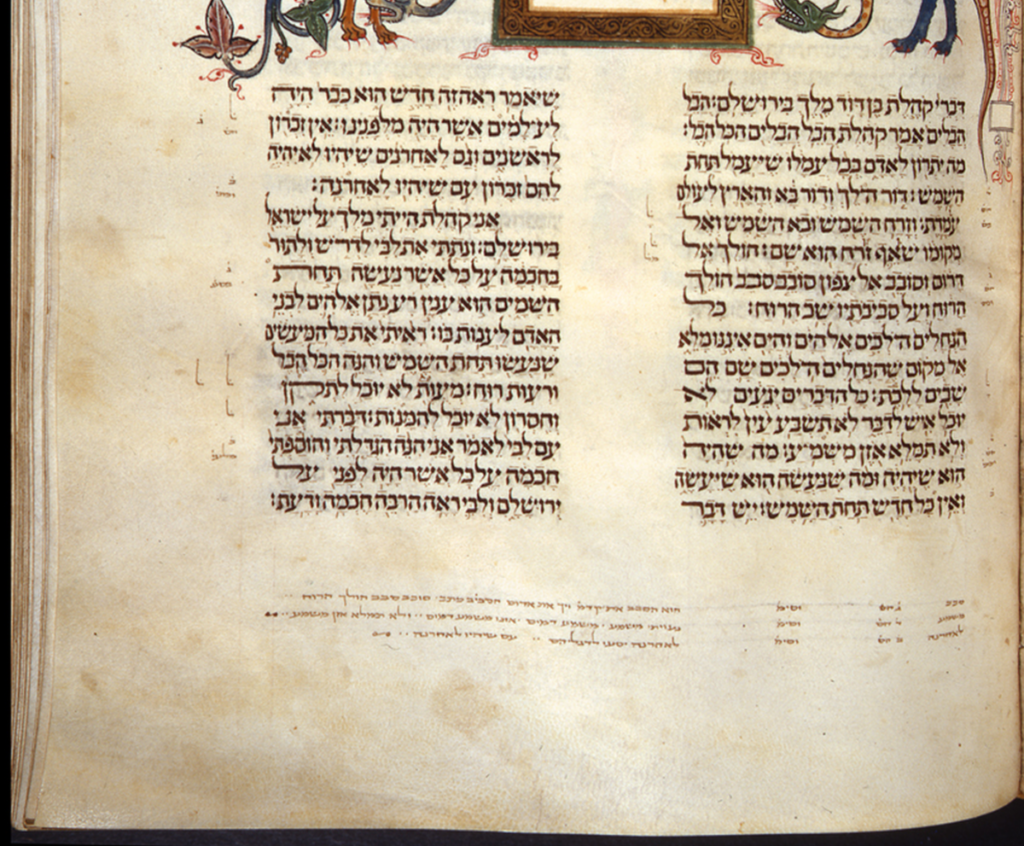 דברי קהלת בן דוד מלך בירושלם: הבל
הבלים אמר קהלת הבל הבלים הכל הבל:
מה יתרון לאדם בכל עמלו שיעמל תחת
השמש: דור הלך ודור בא והארץ לעולם
עמדת: וזרח השמש ובא השמש ואל
מקומו שואף זורח הוא שם: הולך אל
דרום וסובב אל צפון סובב סבב הולך
הרוח ועל סביבתיו שב הרוח: כל
הנחלים הלכים אל הים והים איננו מלא
אל מקום שהנחלים הלכים שם הם
שבים ללכת: כל הדברים יגעים לא
יוכל איש לדבר לא תשבע עין לראות
ולא תמלא אזן משמע: מה שהיה
הוא שיהיה ומה שנעשה הוא שיעשה
ואין כל חדש תחת השמש: יש דבר
שיאמר ראה זה חדש הוא כבר היה
לעלמים אשר היה מלפנינו: אין זכרון
לראשנים וגם לאחרנים שיהיו לא יהיה
להם זכרון עם שיהיו לאחרנה:
אני קהלת הייתי מלך על ישראל
בירושלם: ונתתי את לבי לדרוש ולתור
בחכמה על כל אשר נעשה תחת
השמים הוא ענין רע נתן אלהים לבני
האדם לענות בו: ראיתי את כל המעשים
שנעשו תחת השמש והנה הכל הבל
ורעות רוח: מעות לא יוכל לתקן
וחסרון לא יוכל להמנות: דברתי אני
עם לבי לאמר אני הנה הגדלתי והוספתי
חכמה על כל אשר היה לפני על
ירושלם ולבי ראה הרבה חכמה ודעת:
סבב הוא הסבב סובב סבב הולך הרוח
משמע ומשמע ולא תמלא אזן משמע
לאחרנה לאחרנה יסעו לדגליהם עם שיהיו לאחרנה